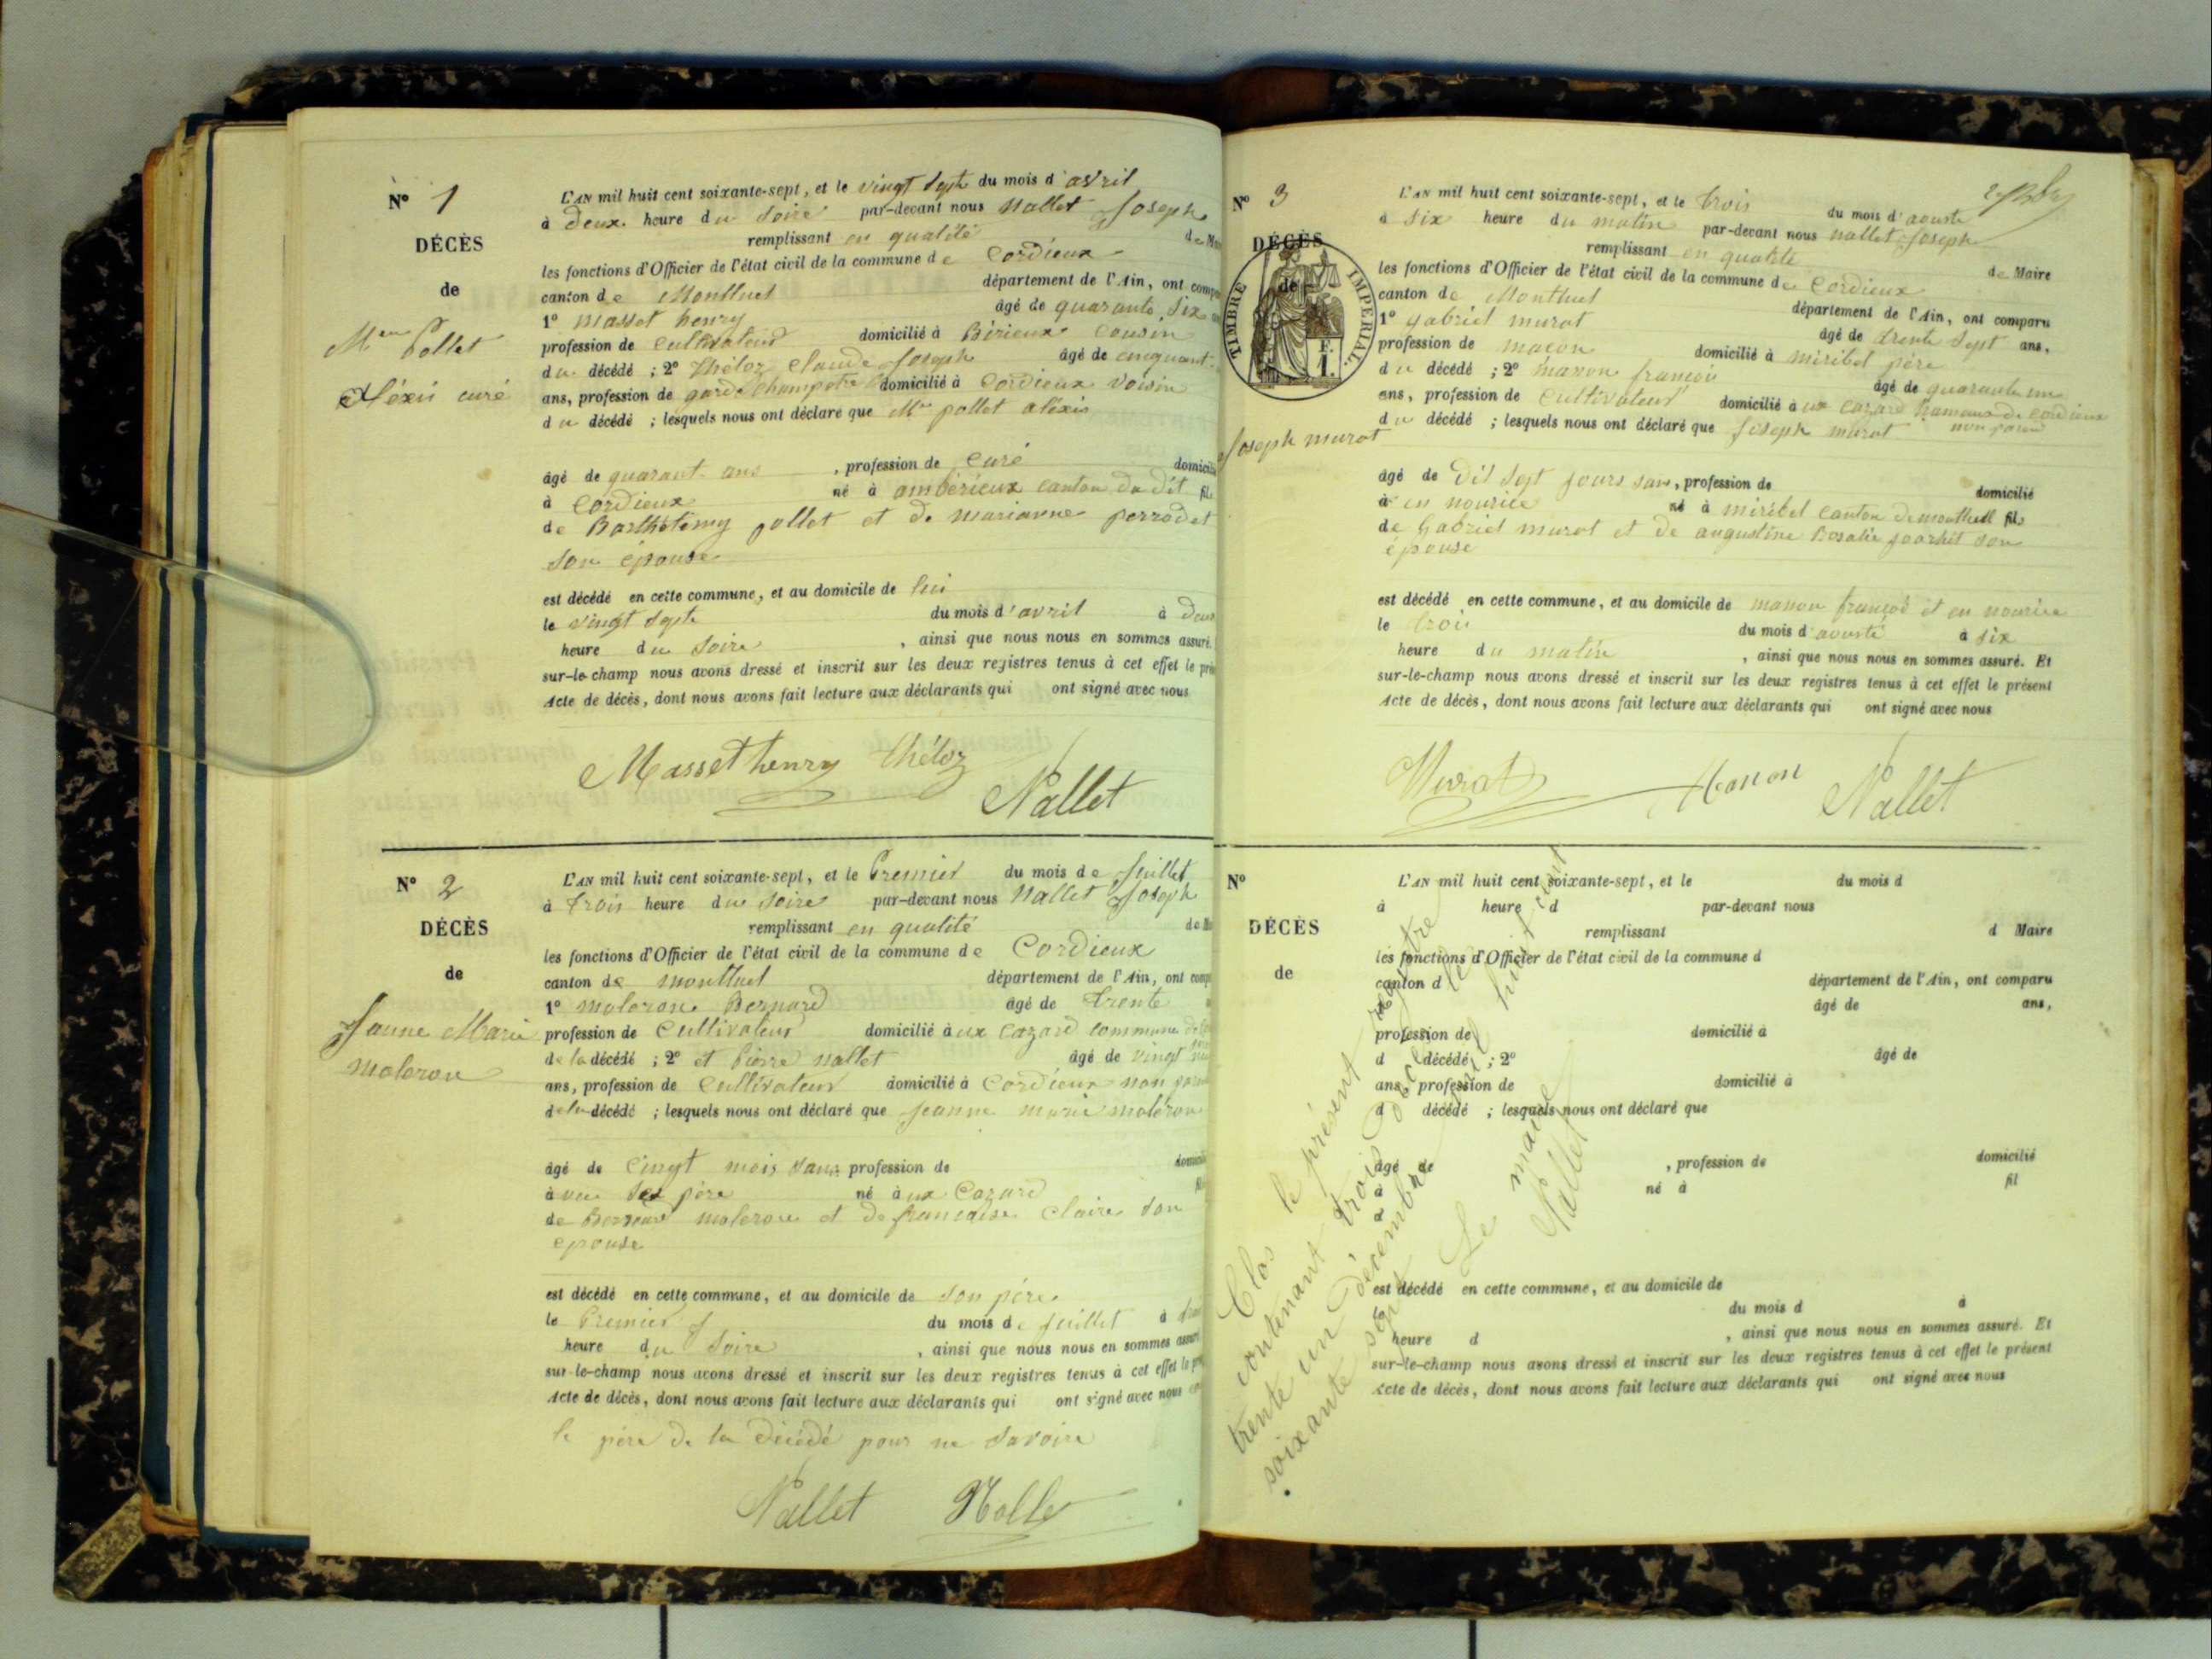 N° 1
DÉCÈS
de
Mr Pollet
Aléxis curé
L'AN mil huit cent soixante-sept, et le vingt sept du mois d'avril
à deux heure du soire par-devant nous Nallet Joseph
remplissant en qualité de Maire
les fonctions d'Officier de l'état civil de la commune de Cordieux
canton de Montluel département de l'Ain, ont comparu
1° Masset henry âgé de quarante six
profession de cultivateur domicilié à Birieux cousin
du décédé ; 2° théloz Claude Joseph âgé de cinquant
ans, profession de garde champetre domicilié à Cordieux voisin
du décédé ; lesquels nous ont déclaré que Mr pollet aléxis
âgé de quarant ans , profession de curé domicilié
à Cordieux né à ambérieux canton du dit fils
de Barthélémy pollet et de marianne perrodet
son épouse
est décédé en cette commune, et au domicile de lui
le vingt sept du mois d'avril à deux
heure du soire , ainsi que nous nous en sommes assuré.
sur-le-champ nous avons dressé et inscrit sur les deux registres tenus à cet effet le
Acte de décès, dont nous avons fait lecture aux déclarants qui ont signé avec nous
Masset henry théloz
Nallet
N° 2
DÉCÈS
de
Jeanne Marie
moleron
L'AN mil huit cent soixante-sept, et le Premier du mois de Juillet
à trois heure du soire par-devant nous Nallet Joseph
remplissant en qualité de
les fonctions d'Officier de l'état civil de la commune de Cordieux
canton de montluel département de l'Ain, ont
1° moleron Bernard âgé de trente
profession de cultivateur domicilié à ux Cazard commune
de la décédé ; 2° et pierre nallet âgé de vingt
ans, profession de cultivateur domicilié à Cordieux non
de la décédé ; lesquels nous ont déclaré que Jeanne marie moleron
âgé de vingt mois sans profession de
à vec ses père né à ux Cazard
de Bernard moleron et de françoise Claire son
epouse
est décédé en cette commune, et au domicile de son père
le Premier du mois de Juillet à
heure du soire , ainsi que nous nous en sommes assuré
sur-le-champ nous avons dressé et inscrit sur les deux registres tenus à cet effet le
Acte de décès, dont nous avons fait lecture aux déclarants qui ont signé avec nous
le père de la décédé pour ne savoire
Nallet Nallet
N° 3
DÉCÈS
de
TIMBRE IMPERIAL
F.
1.
Joseph murat
L'AN mil huit cent soixante-sept, et le trois du mois d'aouste
à six heure du matin par-devant nous nallet Joseph
remplissant en qualité de Maire
les fonctions d'Officier de l'état civil de la commune de Cordieux
canton de Montluel département de l'Ain, ont comparu
1° gabriel murat âgé de trente sept ans,
profession de maçon domicilié à miribel père
du décédé ; 2° manon françois âgé de quarante
ans, profession de cultivateur domicilié à ux cazard hamaux de cordieux
non parent
du décédé ; lesquels nous ont déclaré que Joseph murat
âgé de dit sept jours sans, profession de domicilié
à en nourice né à miribel canton de montluel fils
de gabriel murat et de augustine Rosalie son
épouse
est décédé en cette commune, et au domicile de manon françois et en nourice
le trois du mois d'aouste à six
heure du matin , ainsi que nous nous en sommes assuré. Et
sur-le-champ nous avons dressé et inscrit sur les deux registres tenus à cet effet le présent
Acte de décès, dont nous avons fait lecture aux déclarants qui ont signé avec nous
Murat Manon Nallet
N°
DÉCÈS
de
L'AN mil huit cent soixante-sept, et le du mois d
à heure d par-devant nous
remplissant d Maire
les fonctions d'Officier de l'état civil de la commune d
canton d département de l'Ain, ont comparu
1° âgé de ans,
profession de domicilié à
d décédé ; 2° âgé de
ans, profession de domicilié à
d décédé ; lesquels nous ont déclaré que
âgé de , profession de domicilié
à né à fil
d
est décédé en cette commune, et au domicile de
le du mois d à
heure d , ainsi que nous nous en sommes assuré. Et
sur-le-champ nous avons dressé et inscrit sur les deux registres tenus à cet effet le présent
Acte de décès, dont nous avons fait lecture aux déclarants qui ont signé avec nous
Clos le présent registre
contenant trois décès le
trente un décembre mil huit cent
soixante sept
Le maire
Nallet